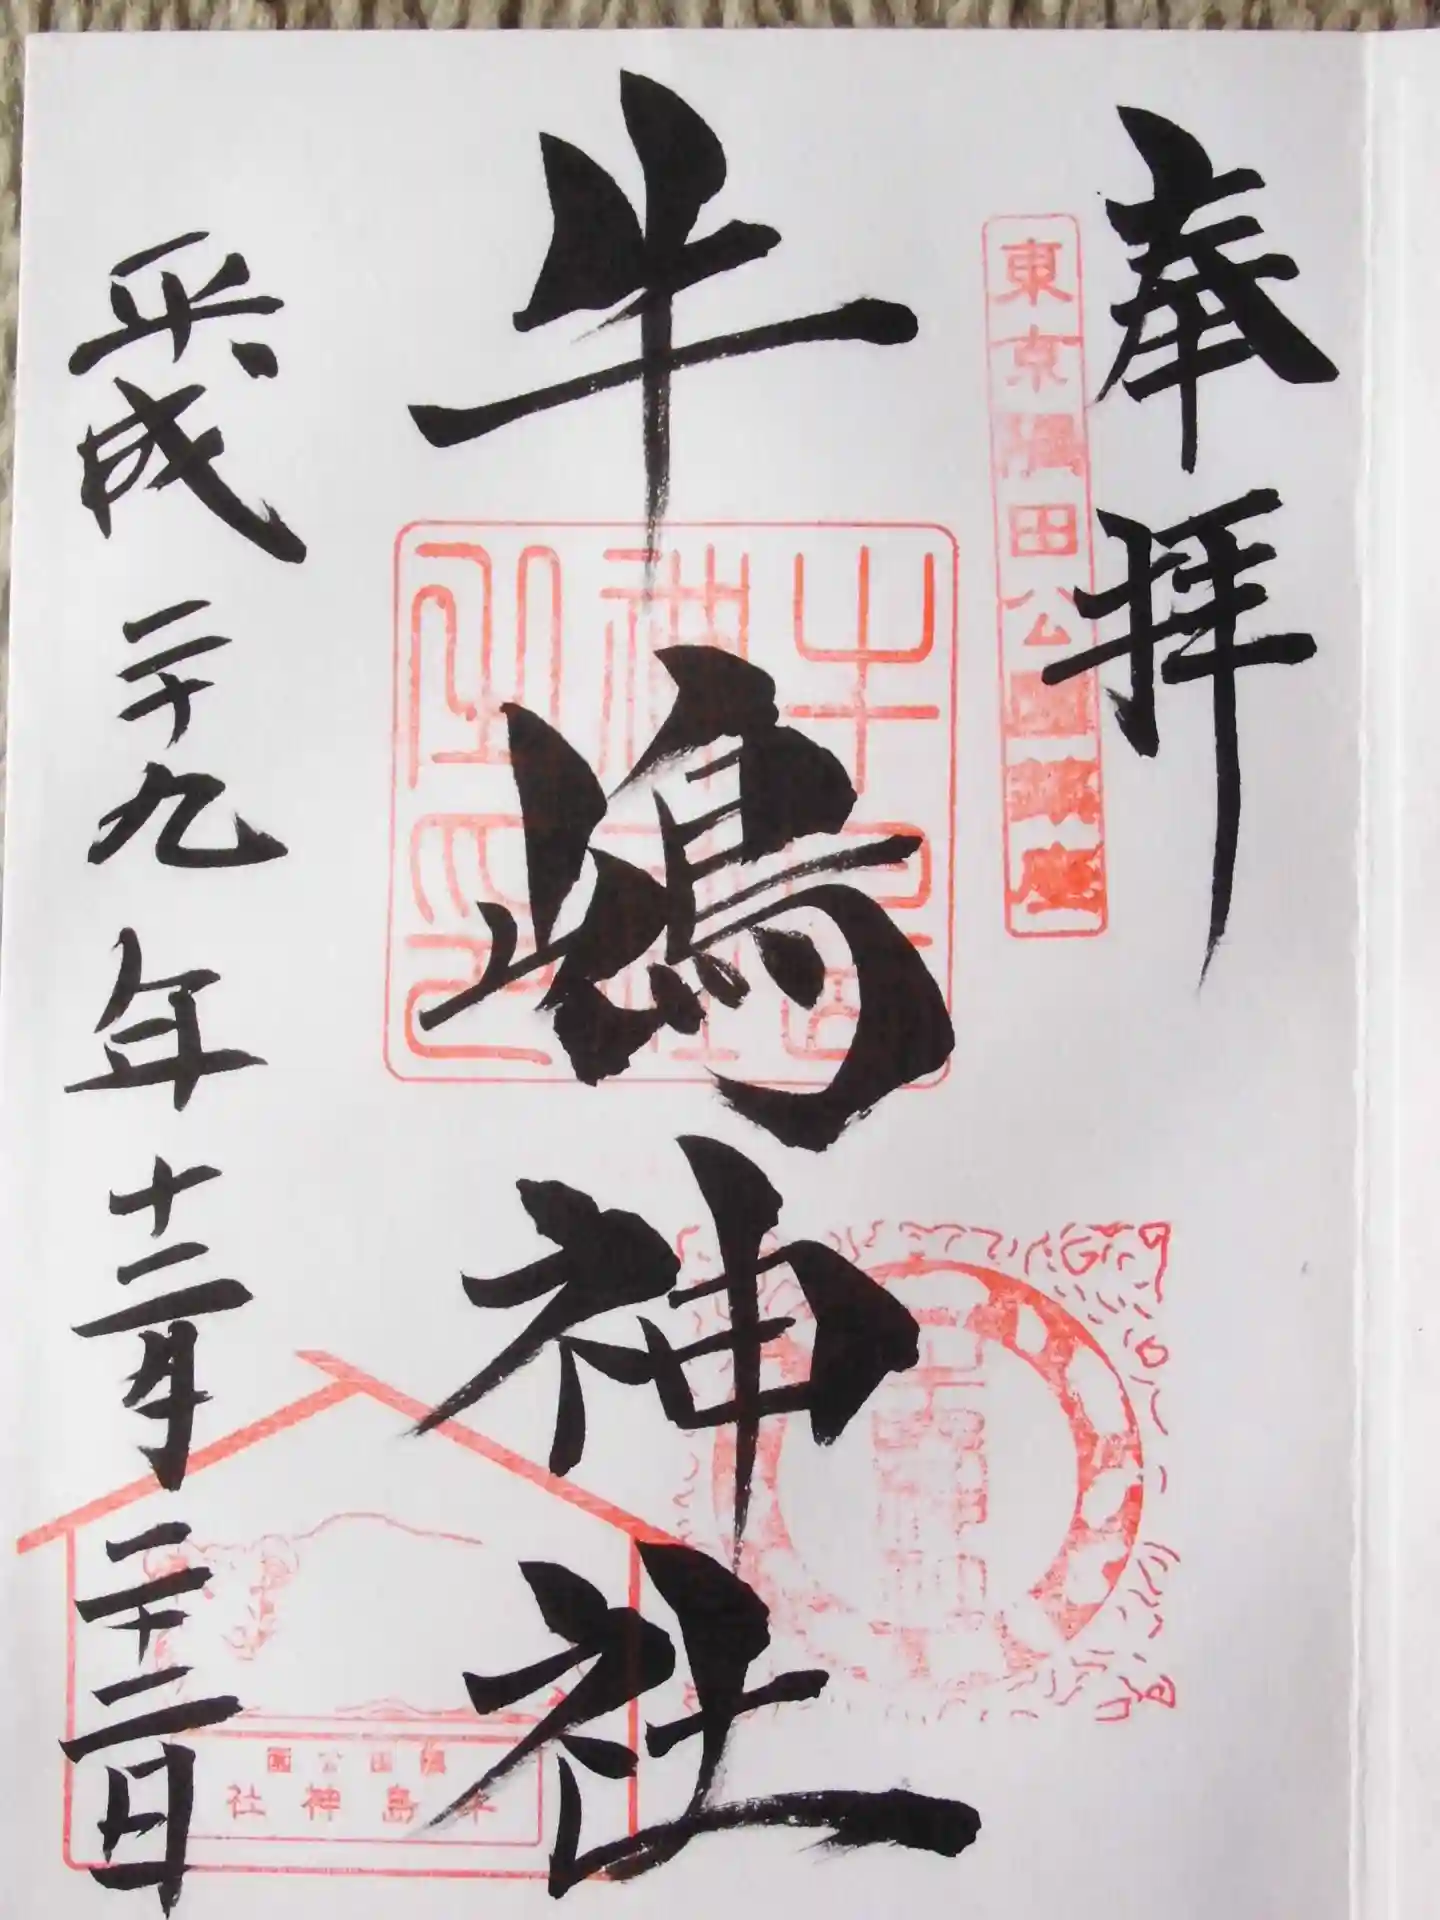 奉拝
東京隅田公園鎮座
牛嶋神社
牛嶋神社之印
平成二十九年十二月二十二日
隅田公園
牛島神社